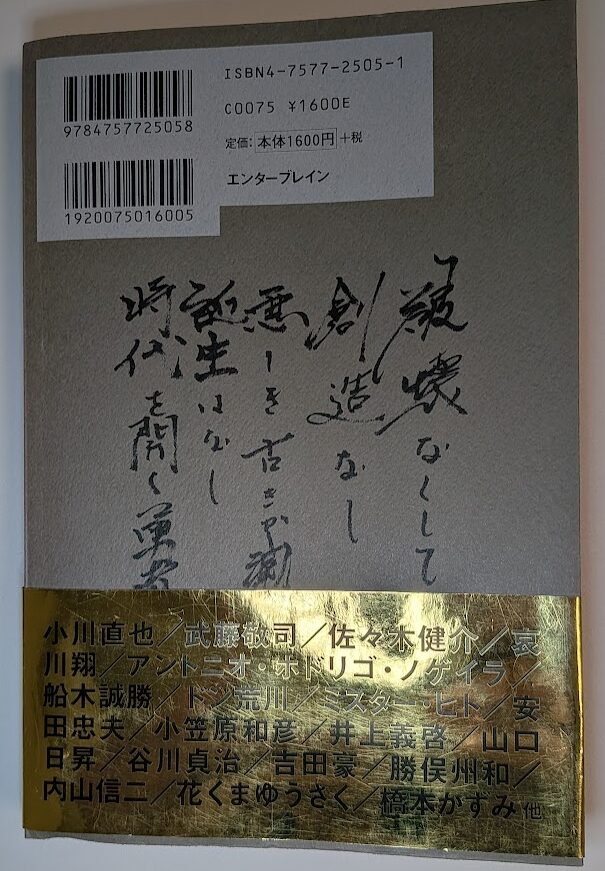 ISBN4-7577-2505-1
C0075 ¥1600E
定価: 本体1600円 +税
エンターブレイン
9784757725058
1920075016005
「破壊なくして
創造なし
悪しき古きが
誕生はなし
時代を開く
小川直也／武藤敬司／佐々木健介／哀
川翔／アントニオ・ホドリゴ・ノゲイラ／
船木誠勝／ドン荒川／ミスター・ヒト／安
田忠夫／小笠原和彦／井上義啓／山口
日昇／谷川貞治／吉田豪／勝俣州和／
内山信二／花くまゆうさく／橋本かずみ 他